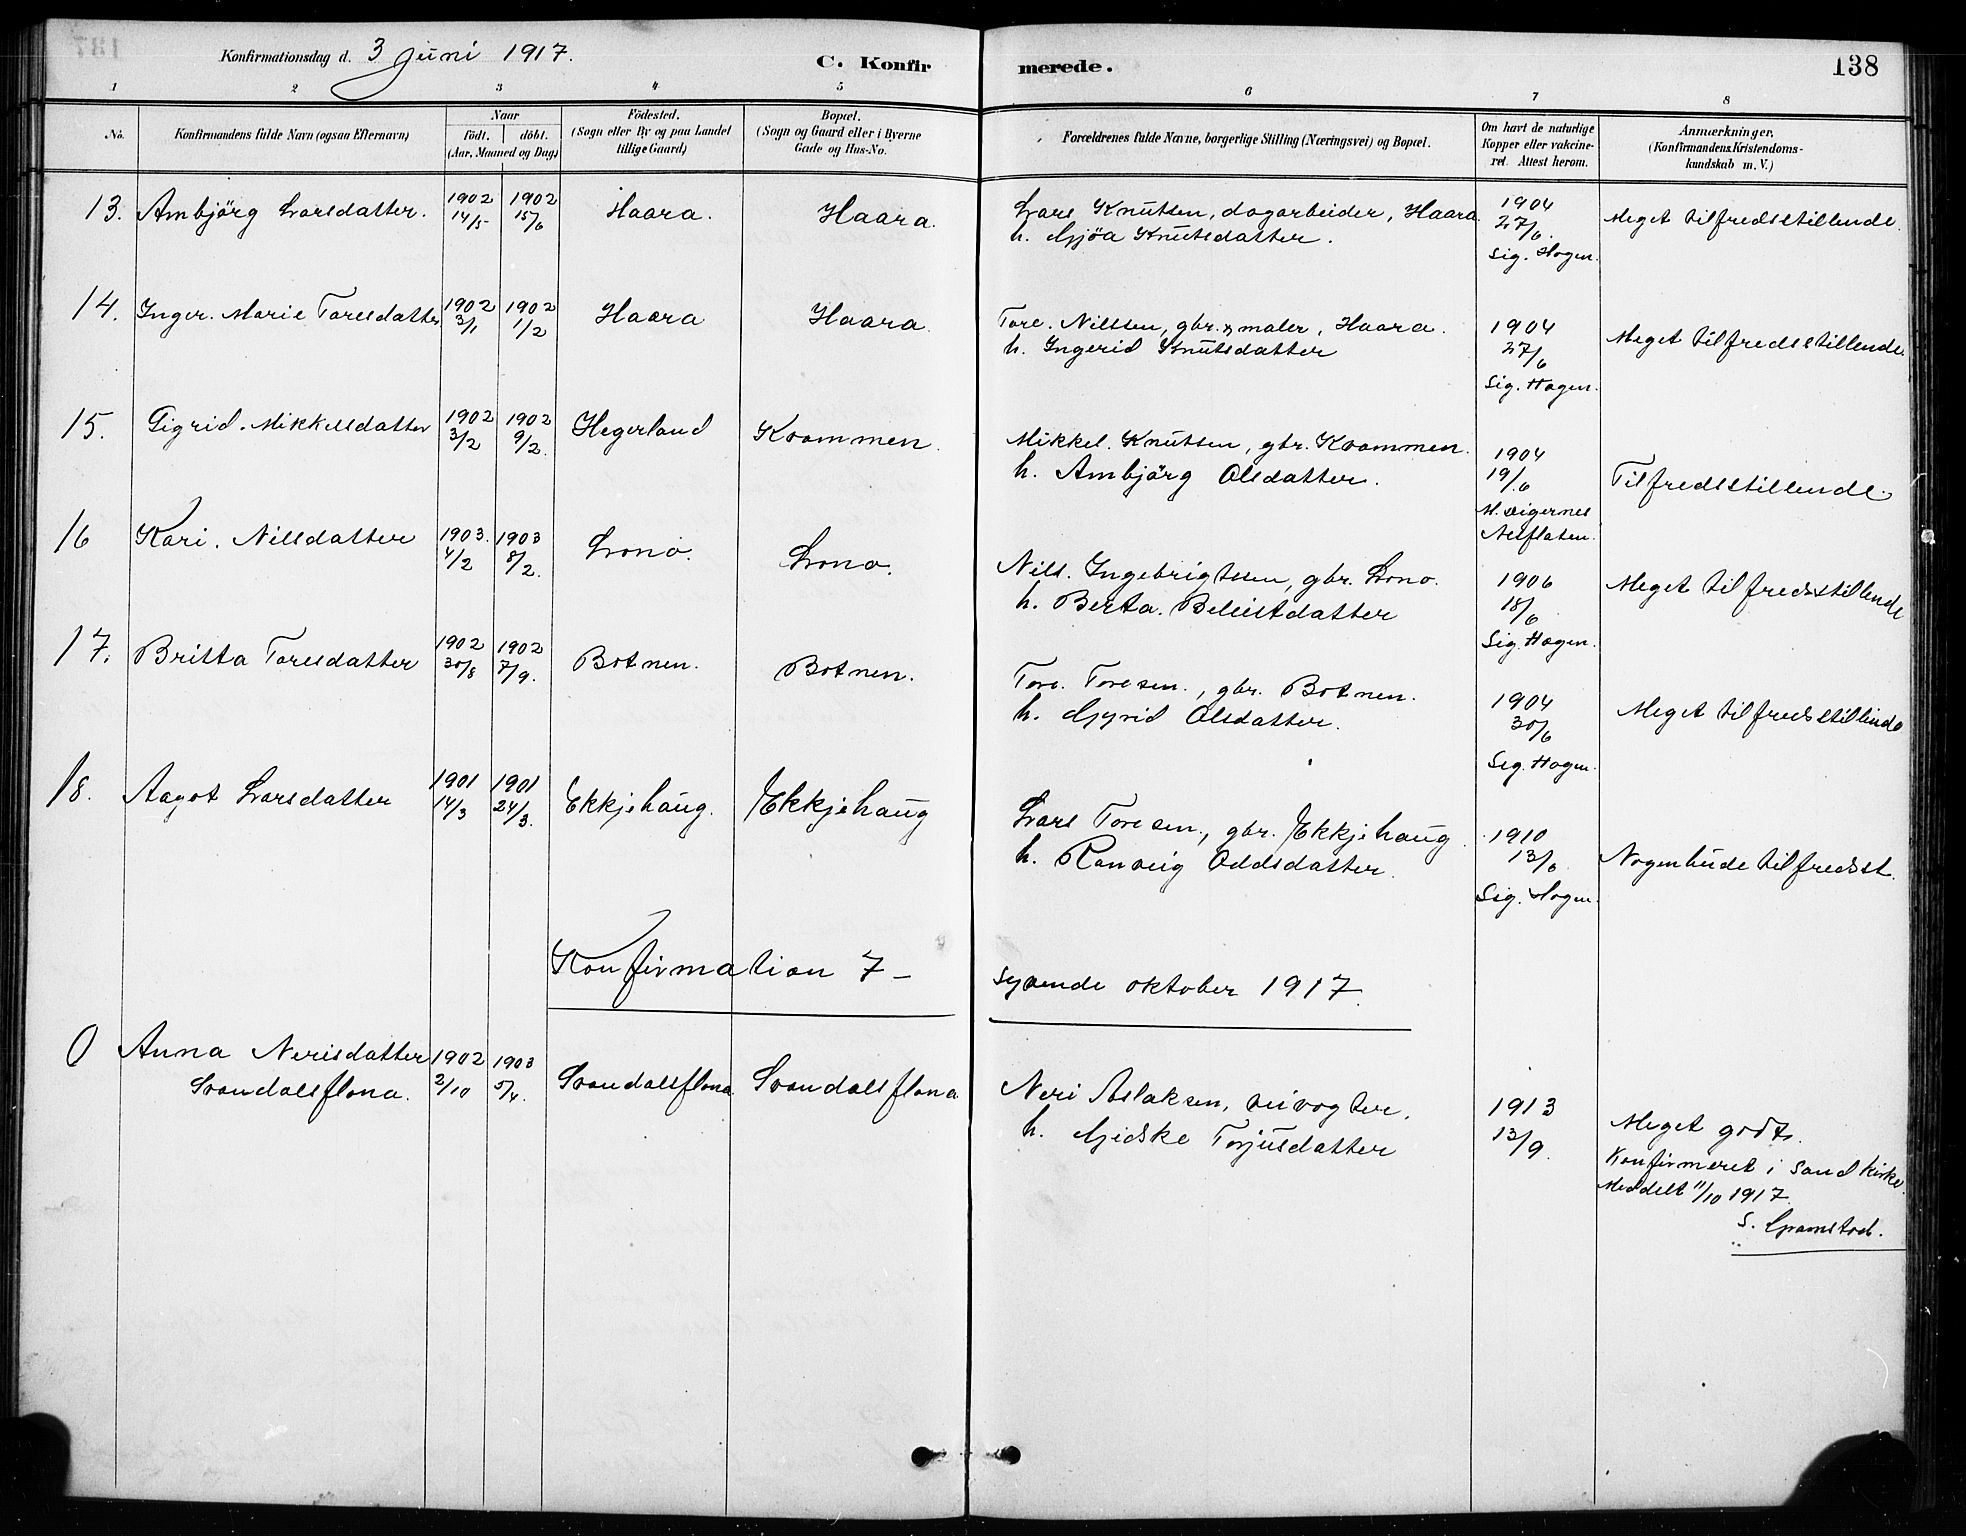 Konfirmationsdag d. 3 juni 1917.
C. Konfirmerede.
138
1 2 3 4 5 6 7 8
No.
Konfirmandens fulde Navn (ogsaa Efternavn)
Naar
født. døbt.
(Aar, Maaned og Dag)
Fødested.
(Sogn eller By og paa Landet
tillige Gaard)
Bopæl.
(Sogn og Gaard eller i Byerne
Gade og Hus-No.
Forældrenes fulde Navne, borgerlige Stilling (Næringsvei) og Bopæl.
Om havt de naturlige
Kopper eller vakcine-
ret. Attest herom.
Anmærkninger.
(Konfirmandens Kristendoms-
kundskab m. V.)
13. Ambjörg Larsdatter. 1902 14/5 1902 15/6 Haara. Haara.
Lars Knutsen, dagarbeider, Haara
h. Gjöa Knutsdatter.
1904
27/6.
Sig. Hagen.
Meget tilfredsstillende.
14. Inger. Marie Toresdatter 1902 3/1 1902 1/2 Haara Haara.
Tore. Nilssen, gbr. & maler, Haara.
h. Ingerid Knutsdatter
1904
27/6
Sig. Hagen.
Meget tilfredsstillende
15. Sigrid. Mikkelsdatter 1902 3/2 1902 9/2. Hegerland Kvammen.
Mikkel. Knutsen, gbr. Kvammen.
h. Ambjörg Olsdatter.
1904
19/6
Nesflaten.
Tilfredsstillende.
16 Kari. Nilsdatter 1903. 4/2 1903 8/2. Lono. Lono.
Nils. Ingebrigtsen, gbr. Lono.
h. Berta. Belestdatter
1906
18/6
Sig. Hagen.
Meget tilfredsstillende
17. Britta Toresdatter 1902 30/8 1902 7/9. Botnen. Botnen.
Tore. Toresen., gbr. Botnen.
h. Gyrid Olsdatter.
1904
30/6
Sig. Hagen.
Meget tilfredsstillende
18. Aagot Larsdatter 1901 14/3 1901 24/3. Ekkjehaug. Ekkjehaug
Lars Toresen., gbr. Ekkjehaug.
h. Ranveig Oddsdatter.
1910
13/6
Sig. Hagen.
Nogenlunde tilfredsst.
Konfirmation 7-
syvende oktober 1917.
0 Anna Nerisdatter
Svandalsflona. 1902 2/10 1903 5/4. Svandalsflona Svandalsflona
Neri Aslaksen, veivogter.
h. Gjidske Torjusdatter
1913
13/9.
Meget godt.
Konfirmeret i Sand kirke.
Meddelt 11/10 1917.
S. Gramstad.